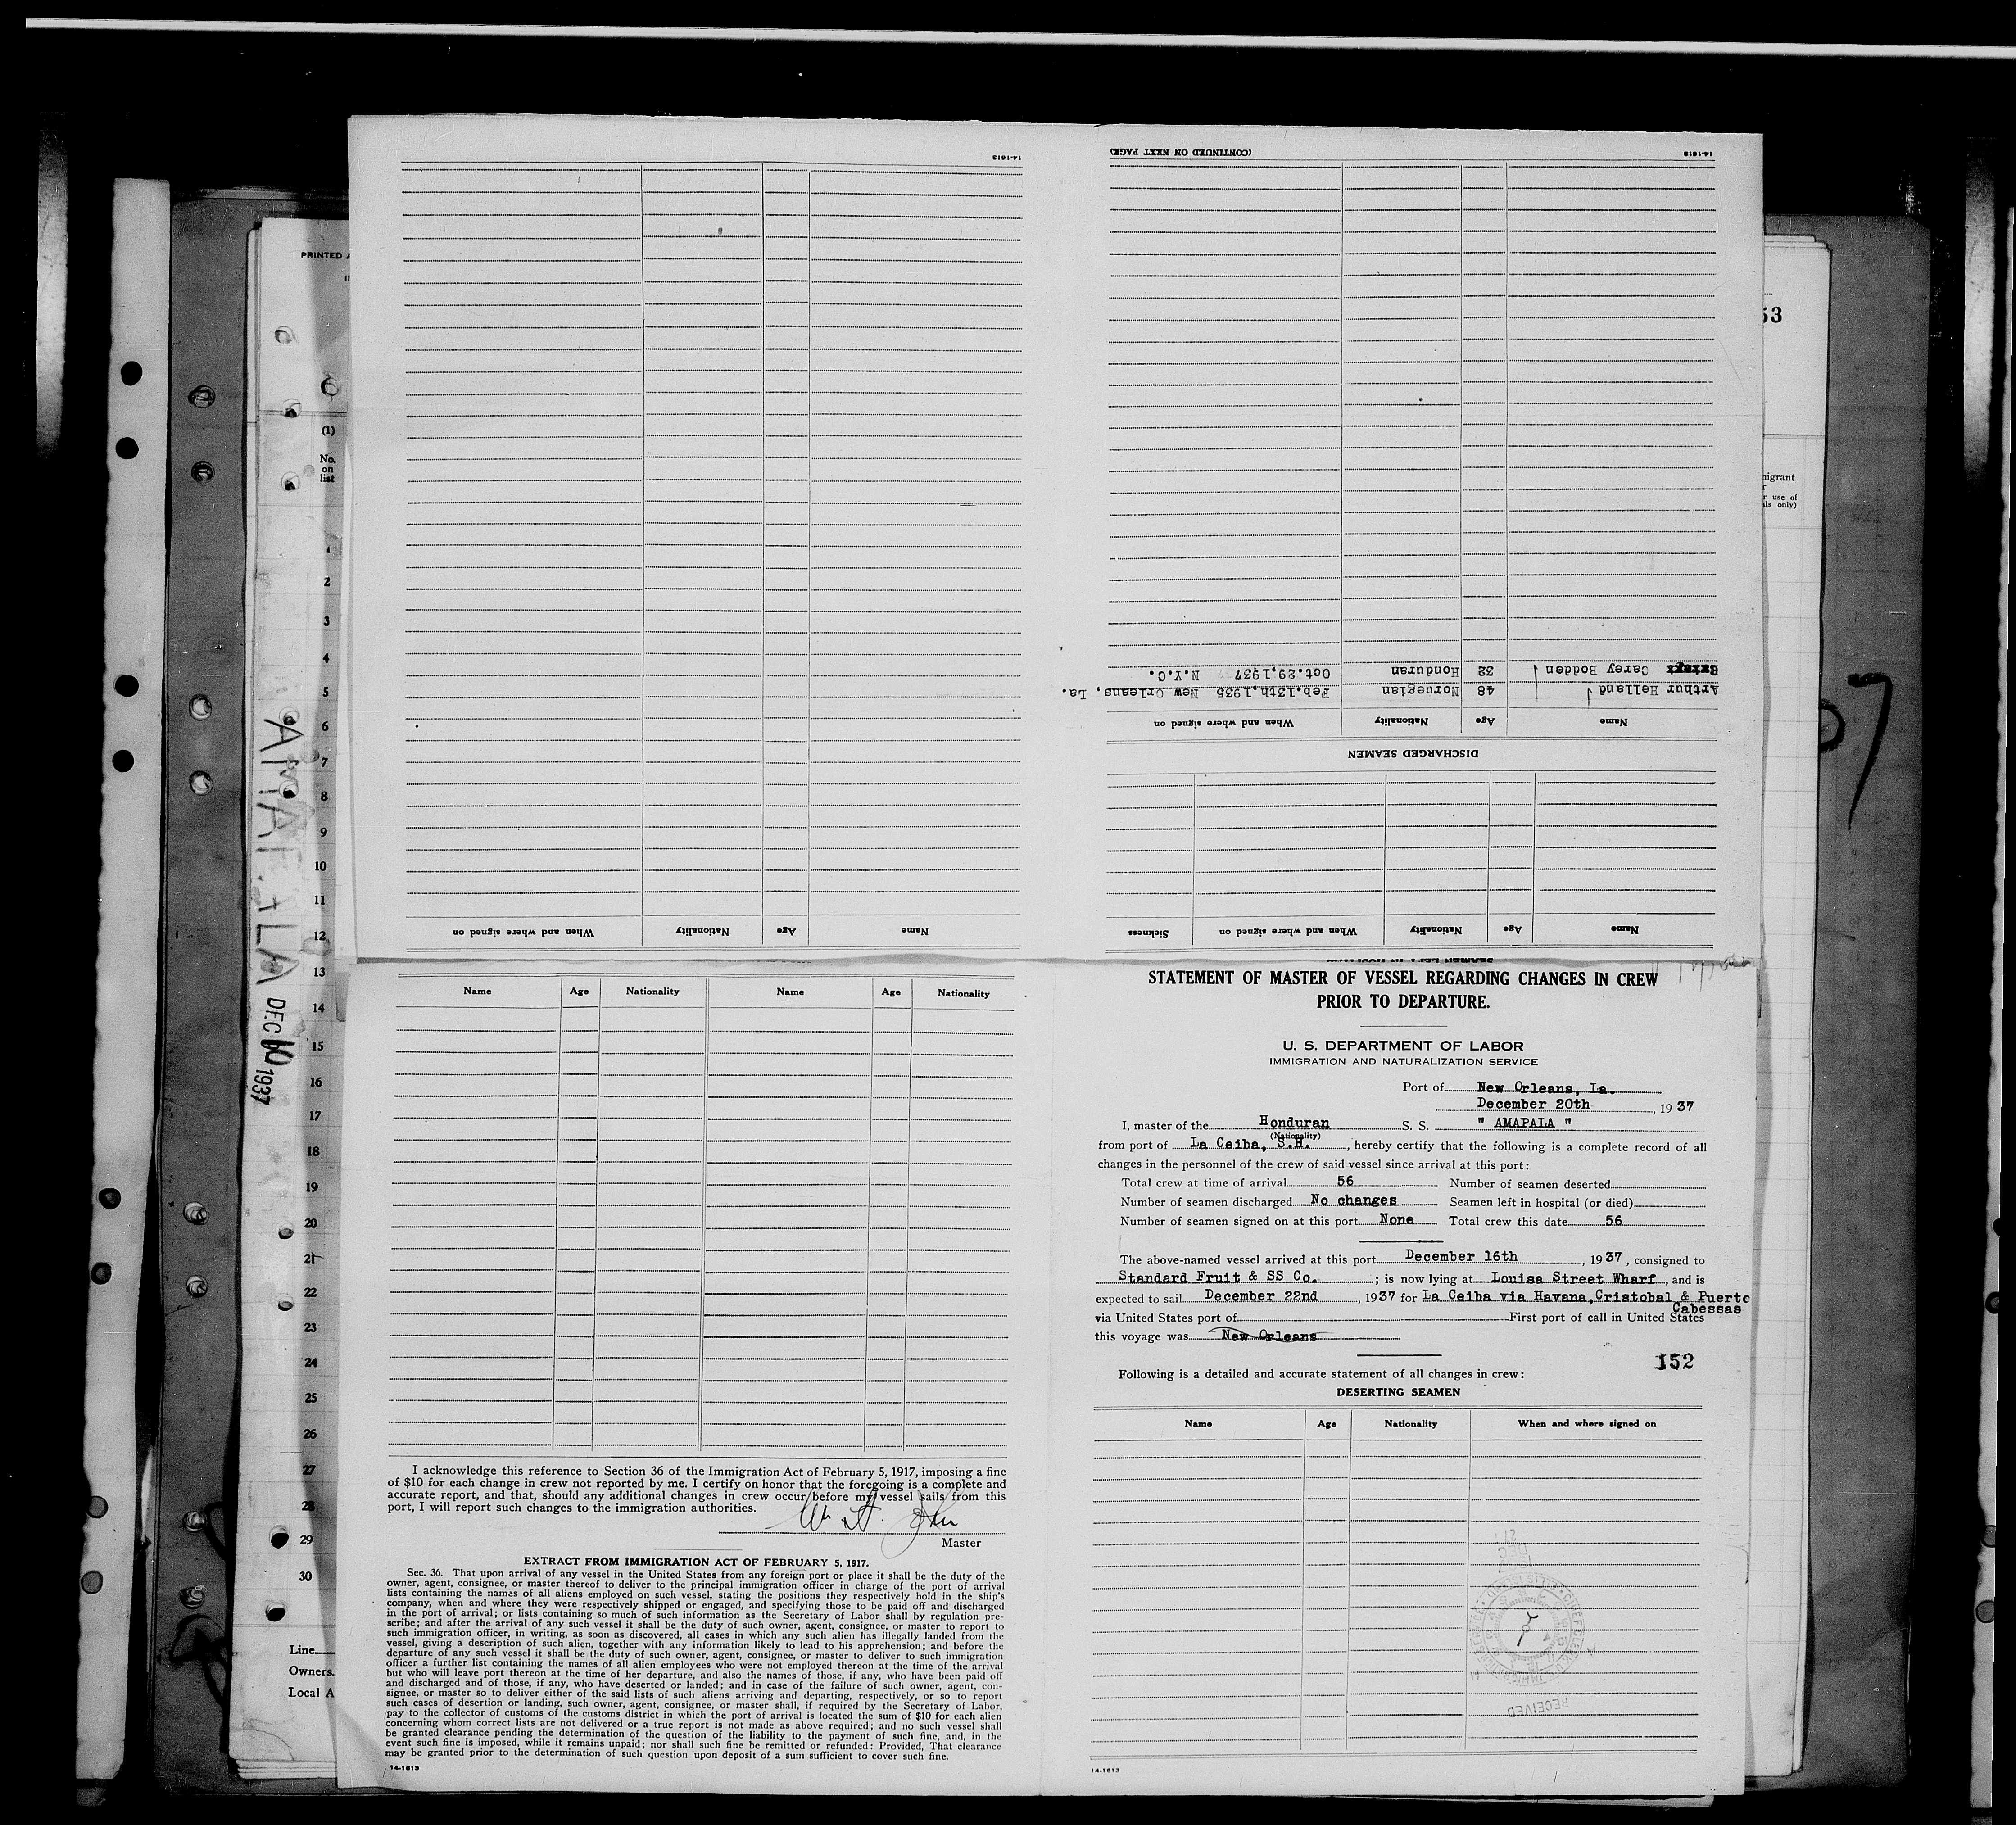 14-1613
(CONTINUED ON NEXT PAGE)
14-1613
Carey Bodden 32 Honduran Oct.29,1937 N.Y.C.
Arthur Helland 48 Norwegian Feb.13th,1935 New Orleans, La.
Name Age Nationality When and where signed on
DISCHARGED SEAMEN
Name Age Nationality When and where signed on
Name Age Nationality When and where signed on Sickness
PRINTED
(1)
No.
on
list
1
2
3
4
5
6
7
8
9
10
11
12
13
14
15
16
17
18
19
20
21
22
23
24
25
26
27
28
29
30
Line
Owners
Local A
DEC 10 1937
53
migrant
r use of
ls only)
Name Age Nationality Name Age Nationality
I acknowledge this reference to Section 36 of the Immigration Act of February 5, 1917, imposing a fine
of $10 for each change in crew not reported by me. I certify on honor that the foregoing is a complete and
accurate report, and that, should any additional changes in crew occur before my vessel sails from this
port, I will report such changes to the immigration authorities.
Master
EXTRACT FROM IMMIGRATION ACT OF FEBRUARY 5, 1917.
Sec. 36. That upon arrival of any vessel in the United States from any foreign port or place it shall be the duty of the
owner, agent, consignee, or master thereof to deliver to the principal immigration officer in charge of the port of arrival
lists containing the names of all aliens employed on such vessel, stating the positions they respectively hold in the ship's
company, when and where they were respectively shipped or engaged, and specifying those to be paid off and discharged
in the port of arrival; or lists containing so much of such information as the Secretary of Labor shall by regulation pre-
scribe; and after the arrival of any such vessel it shall be the duty of such owner, agent, consignee, or master to report to
such immigration officer, in writing, as soon as discovered, all cases in which any such alien has illegally landed from the
vessel, giving a description of such alien, together with any information likely to lead to his apprehension; and before the
departure of any such vessel it shall be the duty of such owner, agent, consignee, or master to deliver to such immigration
officer a further list containing the names of all alien employees who were not employed thereon at the time of the arrival
but who will leave port thereon at the time of her departure, and also the names of those, if any, who have been paid off
and discharged and of those, if any, who have deserted or landed; and in case of the failure of such owner, agent, con-
signee, or master so to deliver either of the said lists of such aliens arriving and departing, respectively, or so to report
such cases of desertion or landing, such owner, agent, consignee, or master shall, if required by the Secretary of Labor,
pay to the collector of customs of the customs district in which the port of arrival is located the sum of $10 for each alien
concerning whom correct lists are not delivered or a true report is not made as above required; and no such vessel shall
be granted clearance pending the determination of the question of the liability to the payment of such fine, and, in the
event such fine is imposed, while it remains unpaid; nor shall such fine be remitted or refunded: Provided, That clearance
may be granted prior to the determination of such question upon deposit of a sum sufficient to cover such fine.
14-1613
STATEMENT OF MASTER OF VESSEL REGARDING CHANGES IN CREW
PRIOR TO DEPARTURE.
U. S. DEPARTMENT OF LABOR
IMMIGRATION AND NATURALIZATION SERVICE
Port of New Orleans, La.
December 20th, 1937
I, master of the Honduran S. S. " AMAPALA "
(Nationality)
from port of La Ceiba, S.H., hereby certify that the following is a complete record of all
changes in the personnel of the crew of said vessel since arrival at this port:
Total crew at time of arrival 56 Number of seamen deserted
Number of seamen discharged No changes Seamen left in hospital (or died)
Number of seamen signed on at this port None Total crew this date 56
The above-named vessel arrived at this port December 16th, 1937, consigned to
Standard Fruit & SS Co.; is now lying at Louisa Street Wharf, and is
expected to sail December 22nd, 1937 for La Ceiba via Havana,Cristobal & Puerto
Cabessas
via United States port of First port of call in United States
this voyage was New Orleans
152
Following is a detailed and accurate statement of all changes in crew:
DESERTING SEAMEN
Name Age Nationality When and where signed on
RECEIVED
14-1613